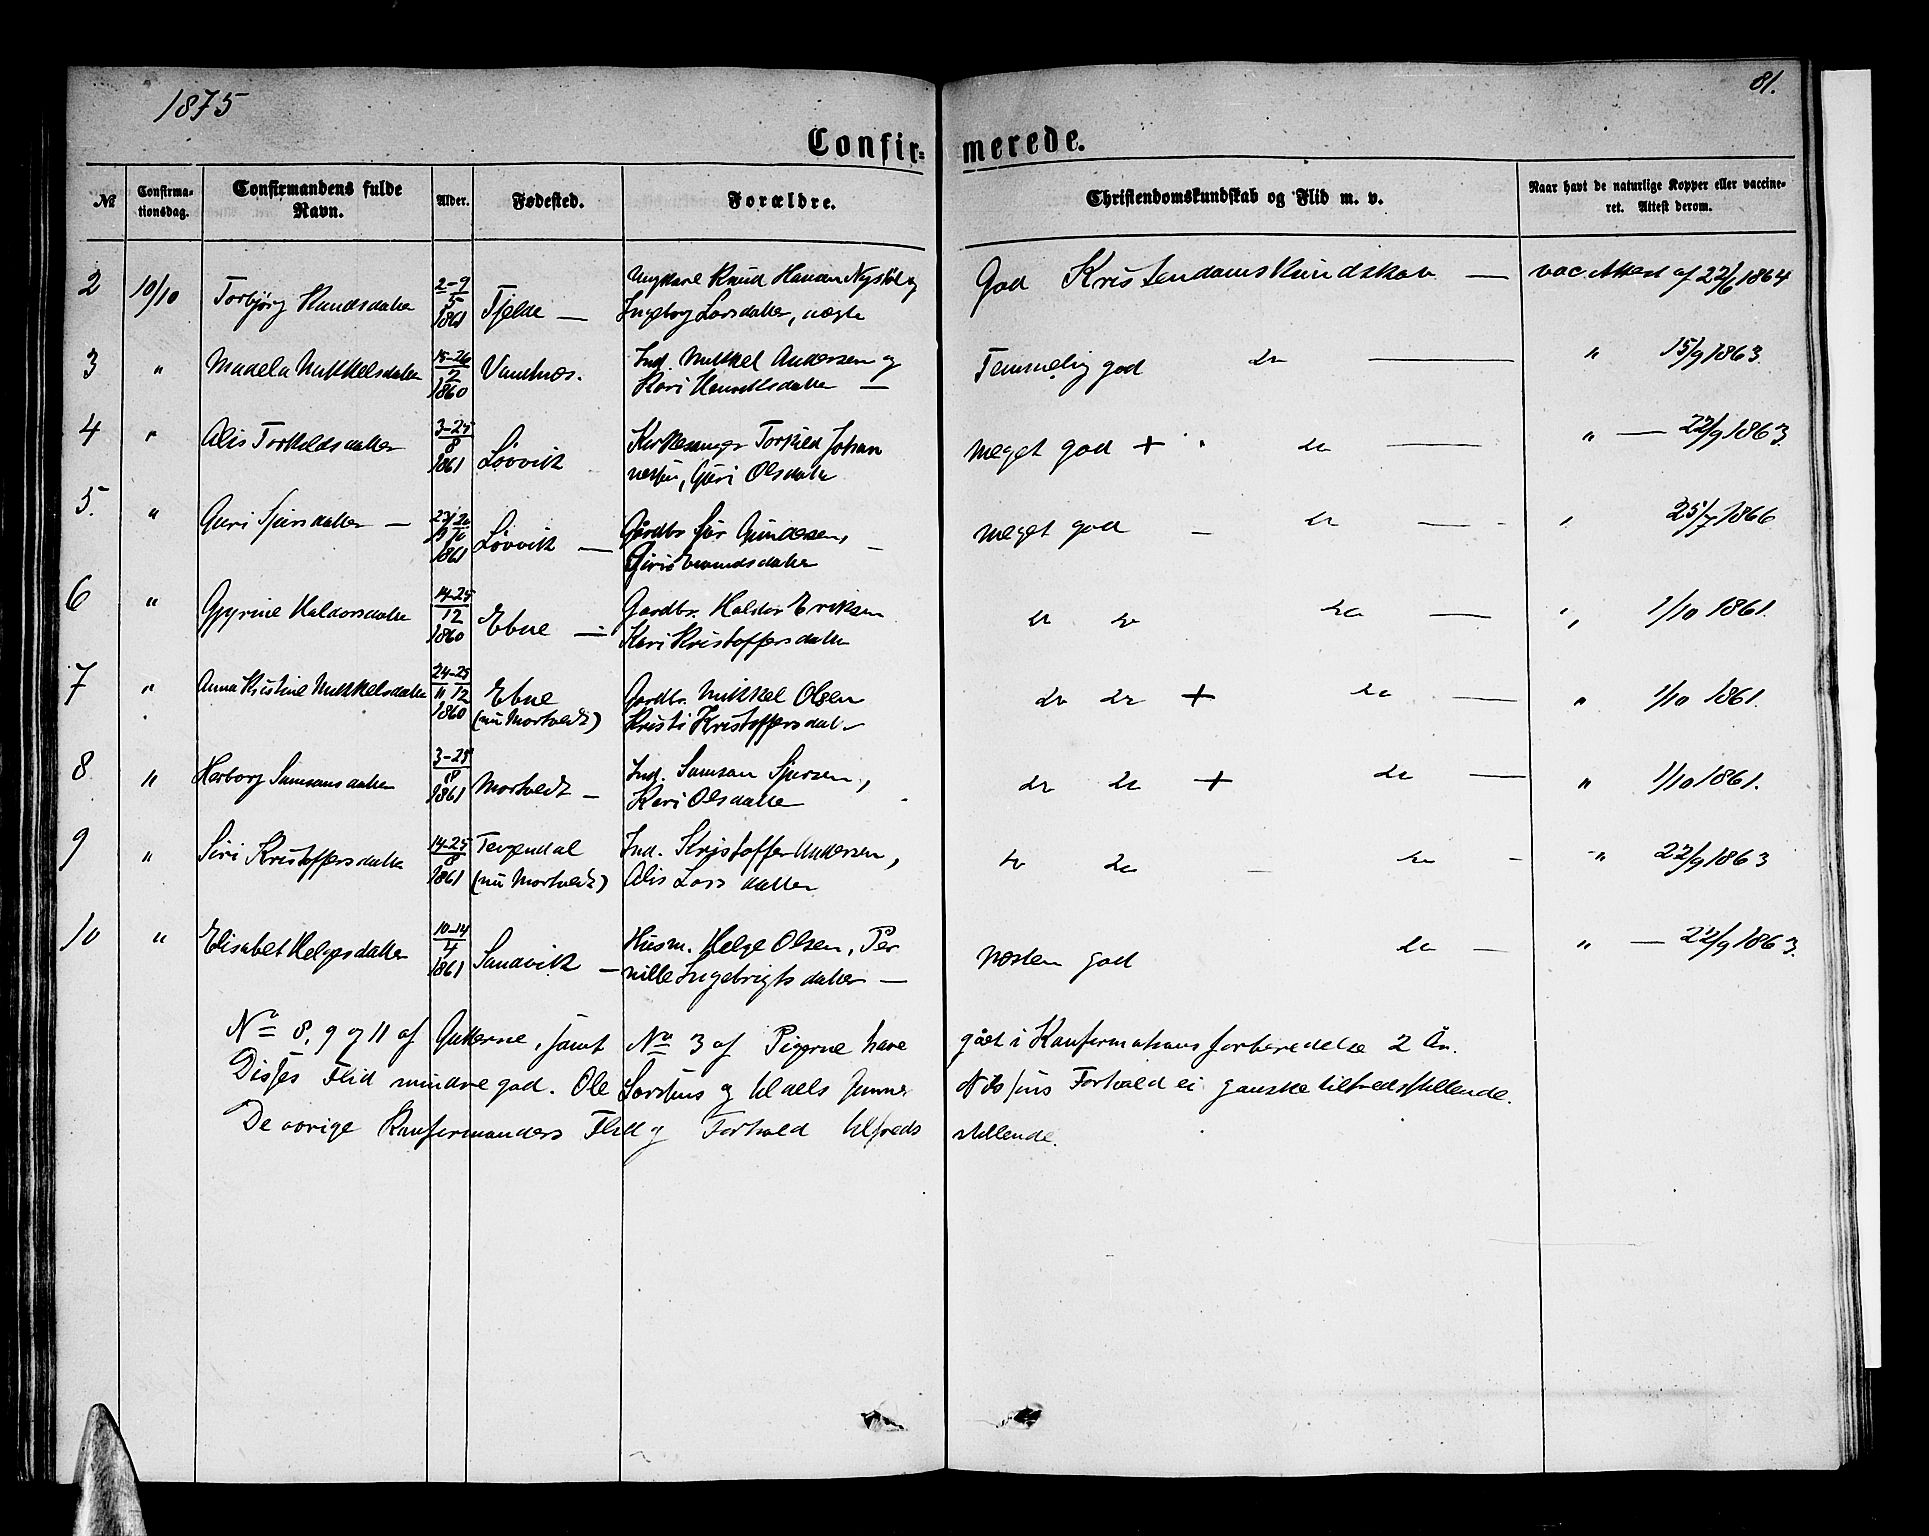 1875
81.
Confir= merede.
№ Confirma-tionsdag. Confirmandens fulde Navn. Alder. Fødested. Forældre. Christendomskundskab og Flid m. v. Naar havt de naturlige Kopper eller vaccine-ret. Attest derom.
2 10/10 Torbjørg Knudsdatter 2-9/5 1861 Fjelde — Ungkarl Knud Hansen Nystøl og Ingeborg Larsdatter, uægte God Kristendomskundskab — vac Attest af 22/6 1864
3 " Madela Mikkelsdatter 15-26/2 1860 Vambnæs. Ind. Mikkel Andersen og Kari — Temmelig god do — " 15/9 1863.
4 " Alis Torkildsdatter 3-25/8 1861 Løvvik Kirkesanger Torkild Johannessen, Guri Olsdatter meget god + " do — " — 22/9 1863.
5. " Guri Sjursdatter — 1861 Løvvik — Gårdbr Sjur Gundersen, Guri — meget god — do — " 25/7 1866
6 " Gyrine Haldorsdatter 14-25/12 1860 Ebne — Gardbr. Haldor Eriksen Kari Kristoffersdatter do do do — " 1/10 1861.
7 " Anna Kristine Mikkelsdatter 24-25/11 12 1860 Ebne (nu Mortvedt) Gardbr. Mikkel Olsen Kristi Kristoffersdat. do do + do — " 1/10 1861.
8 " Herborg Samsonsdatter 3-25/8 1861 Mortvedt — Ind. Samson Sjursen, Kari Olsdatter do do + do — " 1/10 1861.
9 " Siri Kristoffersdatter 14-25/8 1861 (nu Mortvedt) Ind. Kristoffer Andersen, Alis Larsdatter do do — do - " 22/9 1863
10 " Elisabet Helgesdatter 10-14/4 1861 Sandvik — Husm. Helge Olsen, Pernille Ingebrigtsdatter — næsten god do — " — 22/9 1863.
No 8, 9 og 11 af Gutterne, samt No 3 af Pigerne have gået i Konfirmationsforberedelse 2 År.
Disses Flid mindre god. Ole og tildels Forhold ei ganske tilfredsstillende.
De øvrige Konfirmanders Flid og Forhold tilfredsstillende.